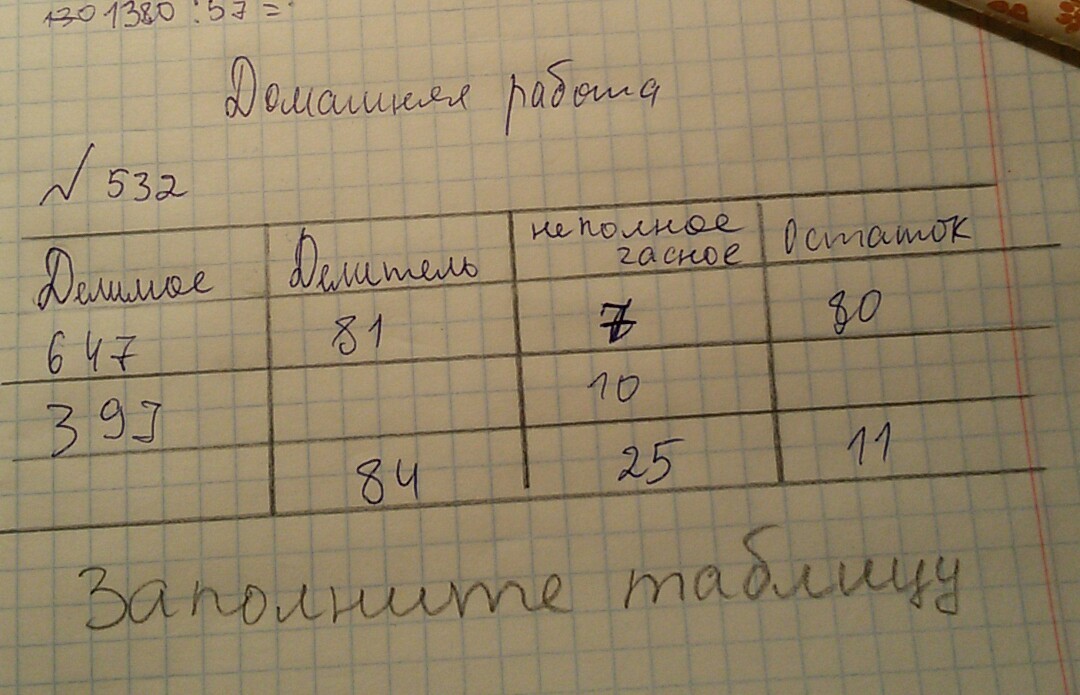 1301380 : 57 =
Домашняя работа
№ 532
Делимое Делитель неполное часное Остаток
647 81 7 80
393 10
84 25 11
Заполните таблицу